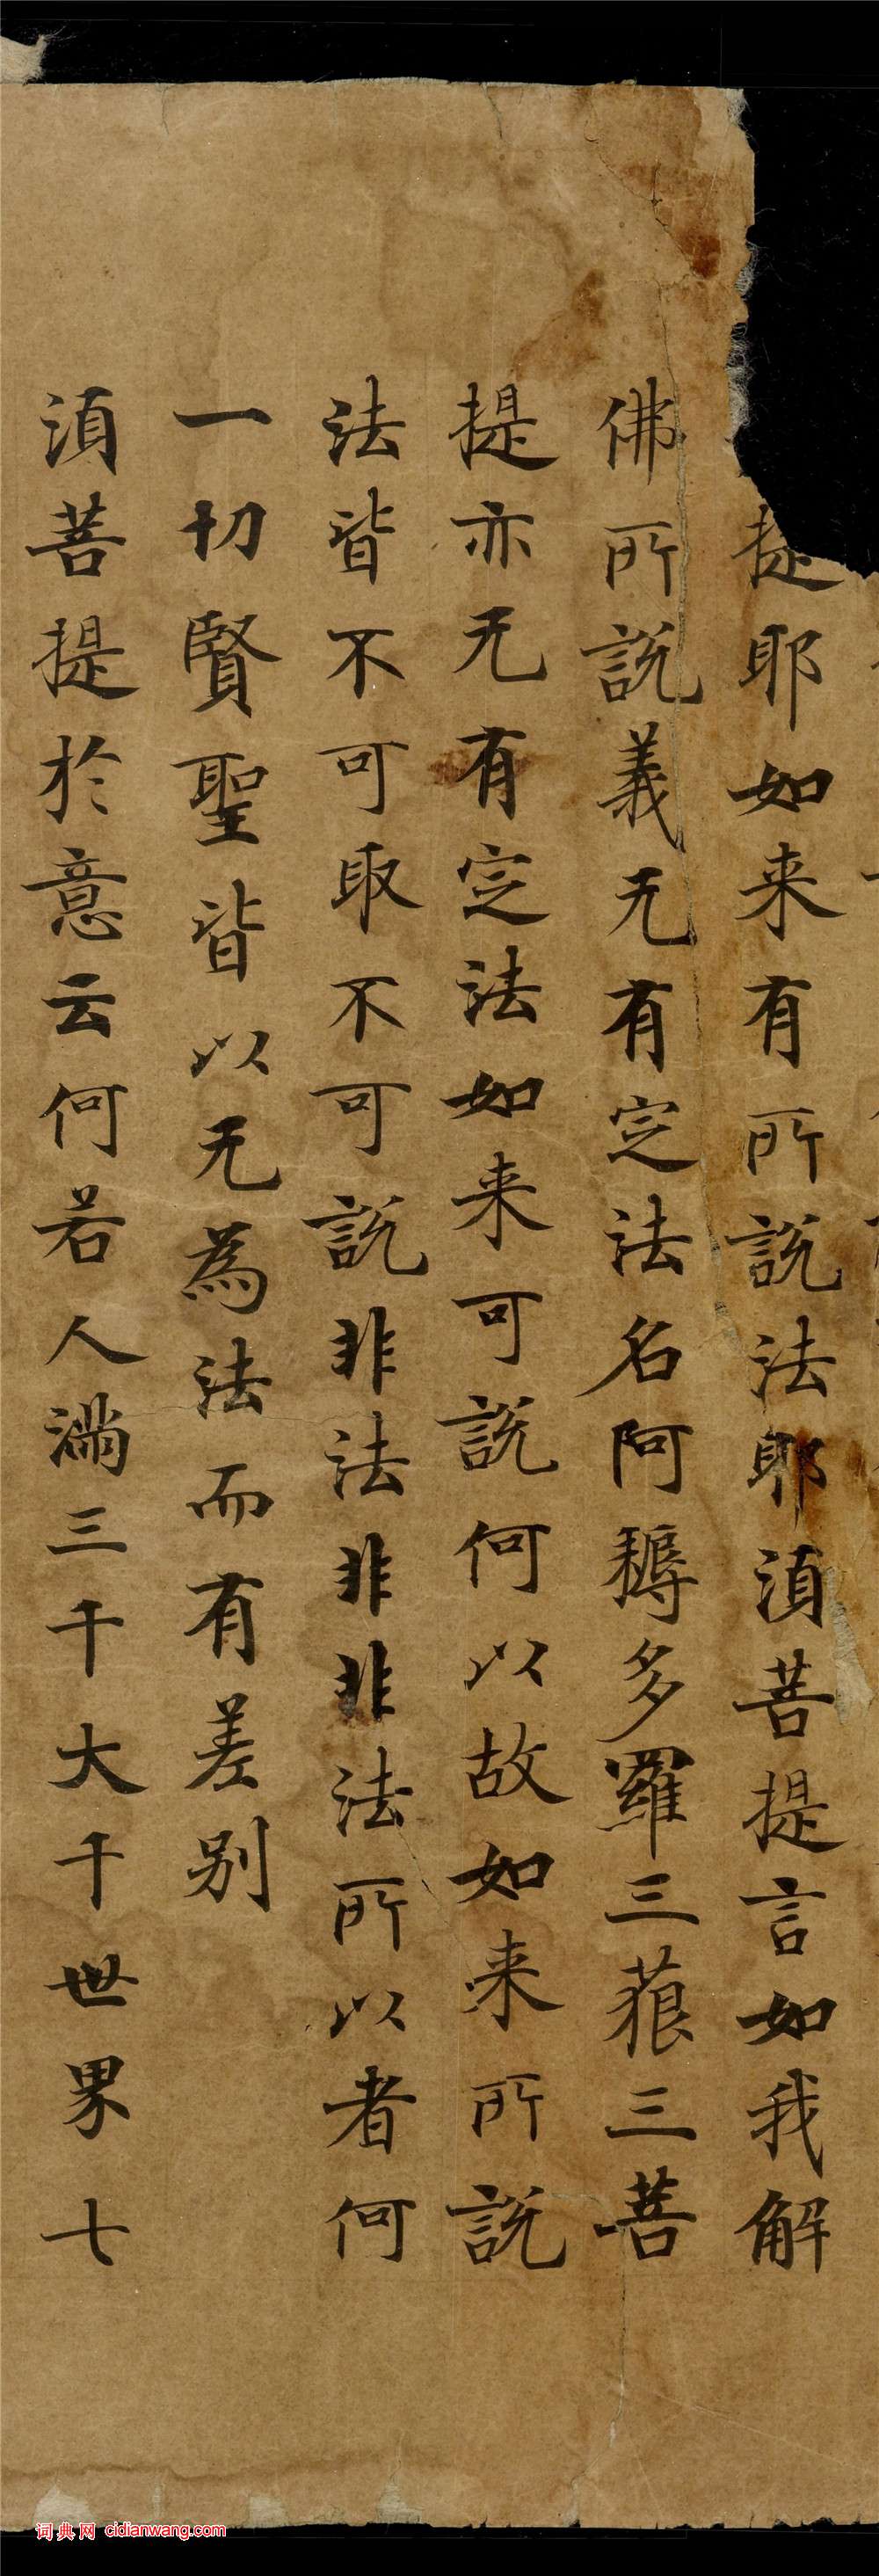 提耶如来有所說法耶湏菩提言如我解
佛所說義无有定法名阿耨多羅三藐三菩
提亦无有定法如来可說何以故如来所說
法皆不可取不可說非法非非法所以者何
一切賢聖皆以无為法而有差别
湏菩提於意云何若人滿三千大千世界七
词典网 cidianwang.com